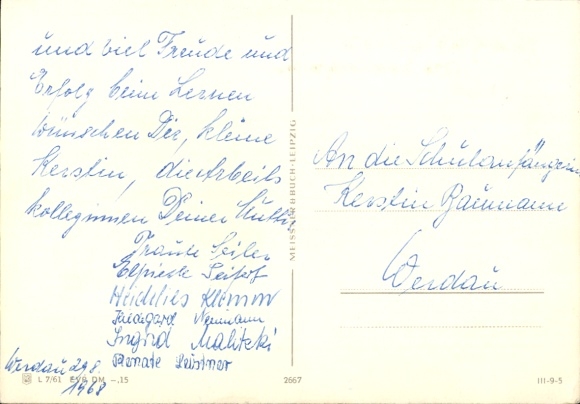 und viel Freude und
Erfolg beim Lernen
wünschen Dir, kleine
Kerstin, die Arbeits
kolleginnen Deiner Mutti,
Traute Seiler
Elfriede Seifert
Heidelies Klemm
Hildegard Neumann
Ingrid Malitzki
Renate Leistner
Werdau 29.8.
1968
L 7/61 EVP DM -,15
MEISSNER & BUCH · LEIPZIG
2667
An die Schulanfängerin
Kerstin Baumann
Werdau
III-9-5